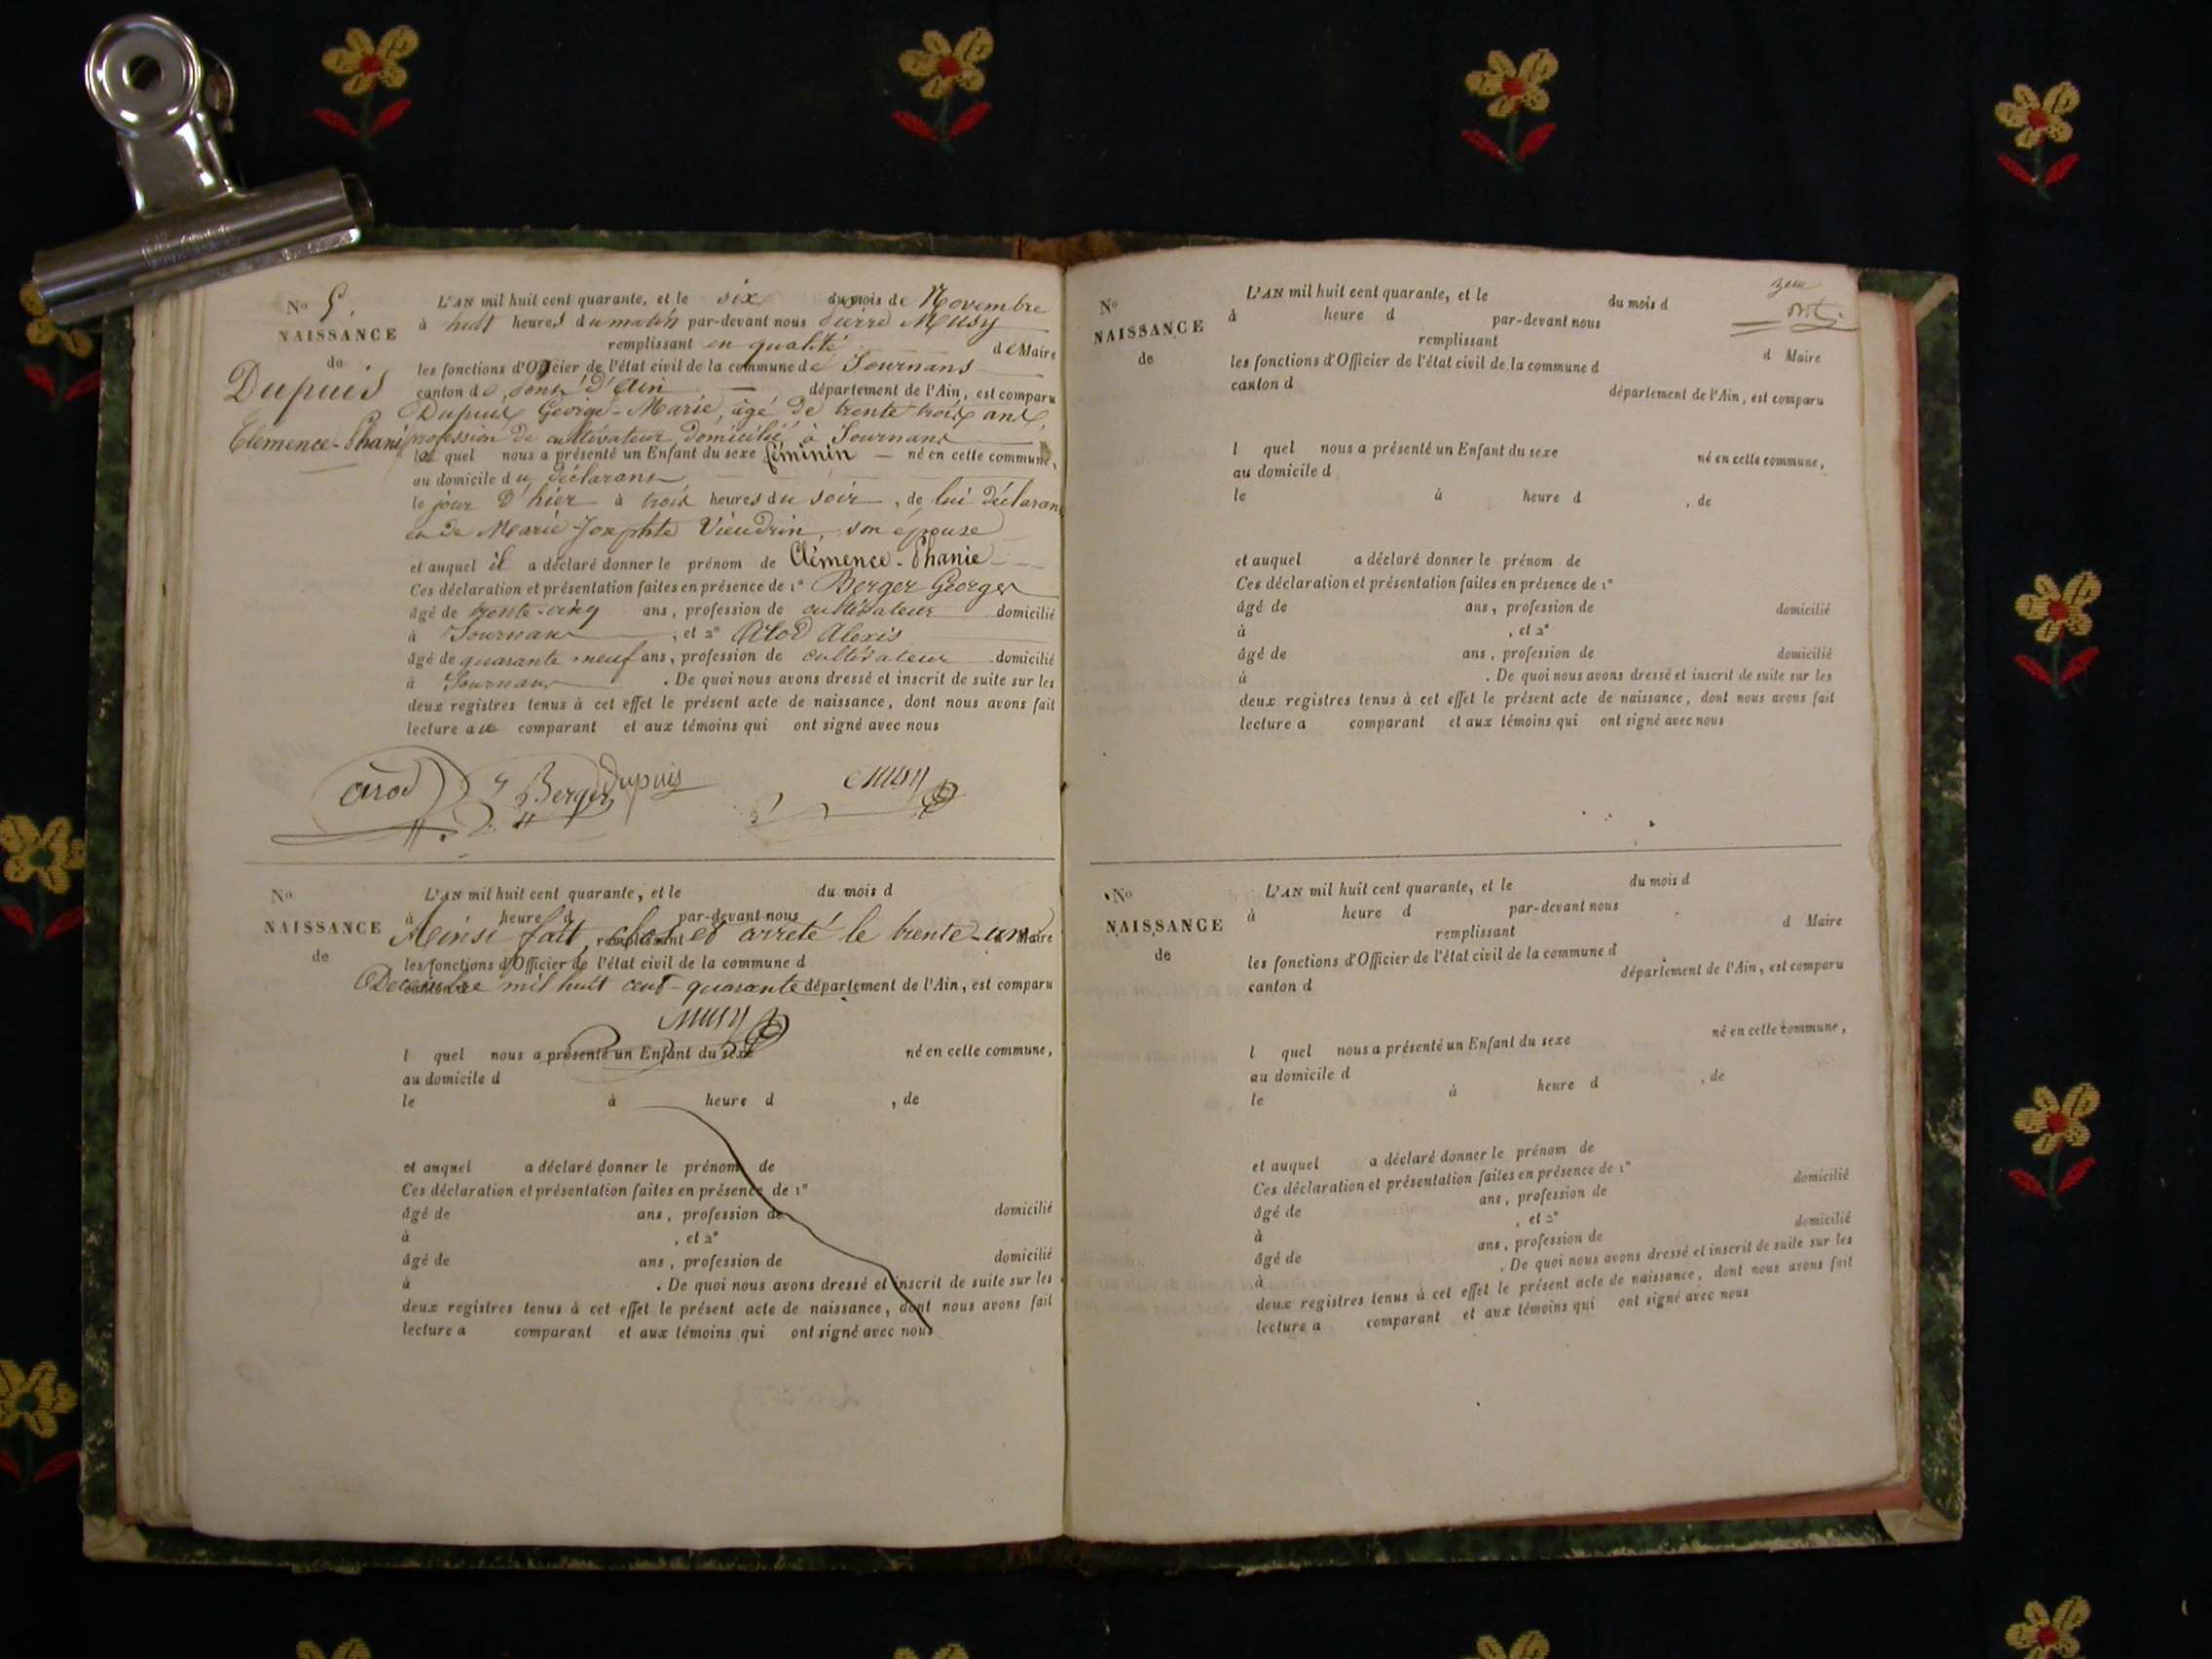 N° 5.
NAISSANCE
de
Dupuis
Clémence-Phanie
L'AN mil huit cent quarante, et le six du mois de Novembre
à huit heures du matin par-devant nous Pierre Musy
remplissant en qualité de Maire
les fonctions d'Officier de l'état civil de la commune de Journans
canton de Pont d'Ain département de l'Ain, est comparu
Dupuis George-Marie, âgé de trente trois ans,
profession de cultivateur, domicilié à Journans
le quel nous a présenté un Enfant du sexe féminin né en cette commune,
au domicile du déclarant
le jour d'hier à trois heures du soir, de lui déclarant
et de Marie Josephte Vieudrin, son épouse
et auquel il a déclaré donner le prénom de Clémence-Phanie
Ces déclaration et présentation faites en présence de 1° Berger Georges
âgé de trente-cinq ans, profession de cultivateur domicilié
à Journans, et 2° Arod Alexis
âgé de quarante neuf ans, profession de cultivateur domicilié
à Journans. De quoi nous avons dressé et inscrit de suite sur les
deux registres tenus à cet effet le présent acte de naissance, dont nous avons fait
lecture au comparant et aux témoins qui ont signé avec nous
Arod Berger Dupuis Musy
N°
NAISSANCE
de
L'AN mil huit cent quarante, et le du mois d
à heure d par-devant nous
Ainsi fait, clos et arreté le trente-un
remplissant d Maire
les fonctions d'Officier de l'état civil de la commune d
Decembre mil huit cent-quarante
canton d département de l'Ain, est comparu
Musy
l quel nous a présenté un Enfant du sexe né en cette commune,
au domicile d
le à heure d , de
et auquel a déclaré donner le prénom de
Ces déclaration et présentation faites en présence de 1°
âgé de ans, profession de domicilié
à , et 2°
âgé de ans, profession de domicilié
à . De quoi nous avons dressé et inscrit de suite sur les
deux registres tenus à cet effet le présent acte de naissance, dont nous avons fait
lecture a comparant et aux témoins qui ont signé avec nous
N°
NAISSANCE
de
L'AN mil huit cent quarante, et le du mois d
à heure d par-devant nous
remplissant d Maire
les fonctions d'Officier de l'état civil de la commune d
canton d département de l'Ain, est comparu
l quel nous a présenté un Enfant du sexe né en cette commune,
au domicile d
le à heure d , de
et auquel a déclaré donner le prénom de
Ces déclaration et présentation faites en présence de 1°
âgé de ans, profession de domicilié
à , et 2°
âgé de ans, profession de domicilié
à . De quoi nous avons dressé et inscrit de suite sur les
deux registres tenus à cet effet le présent acte de naissance, dont nous avons fait
lecture a comparant et aux témoins qui ont signé avec nous
N°
NAISSANCE
de
L'AN mil huit cent quarante, et le du mois d
à heure d par-devant nous
remplissant d Maire
les fonctions d'Officier de l'état civil de la commune d
canton d département de l'Ain, est comparu
l quel nous a présenté un Enfant du sexe né en cette commune,
au domicile d
le à heure d , de
et auquel a déclaré donner le prénom de
Ces déclaration et présentation faites en présence de 1°
âgé de ans, profession de domicilié
à , et 2°
âgé de ans, profession de domicilié
à . De quoi nous avons dressé et inscrit de suite sur les
deux registres tenus à cet effet le présent acte de naissance, dont nous avons fait
lecture a comparant et aux témoins qui ont signé avec nous